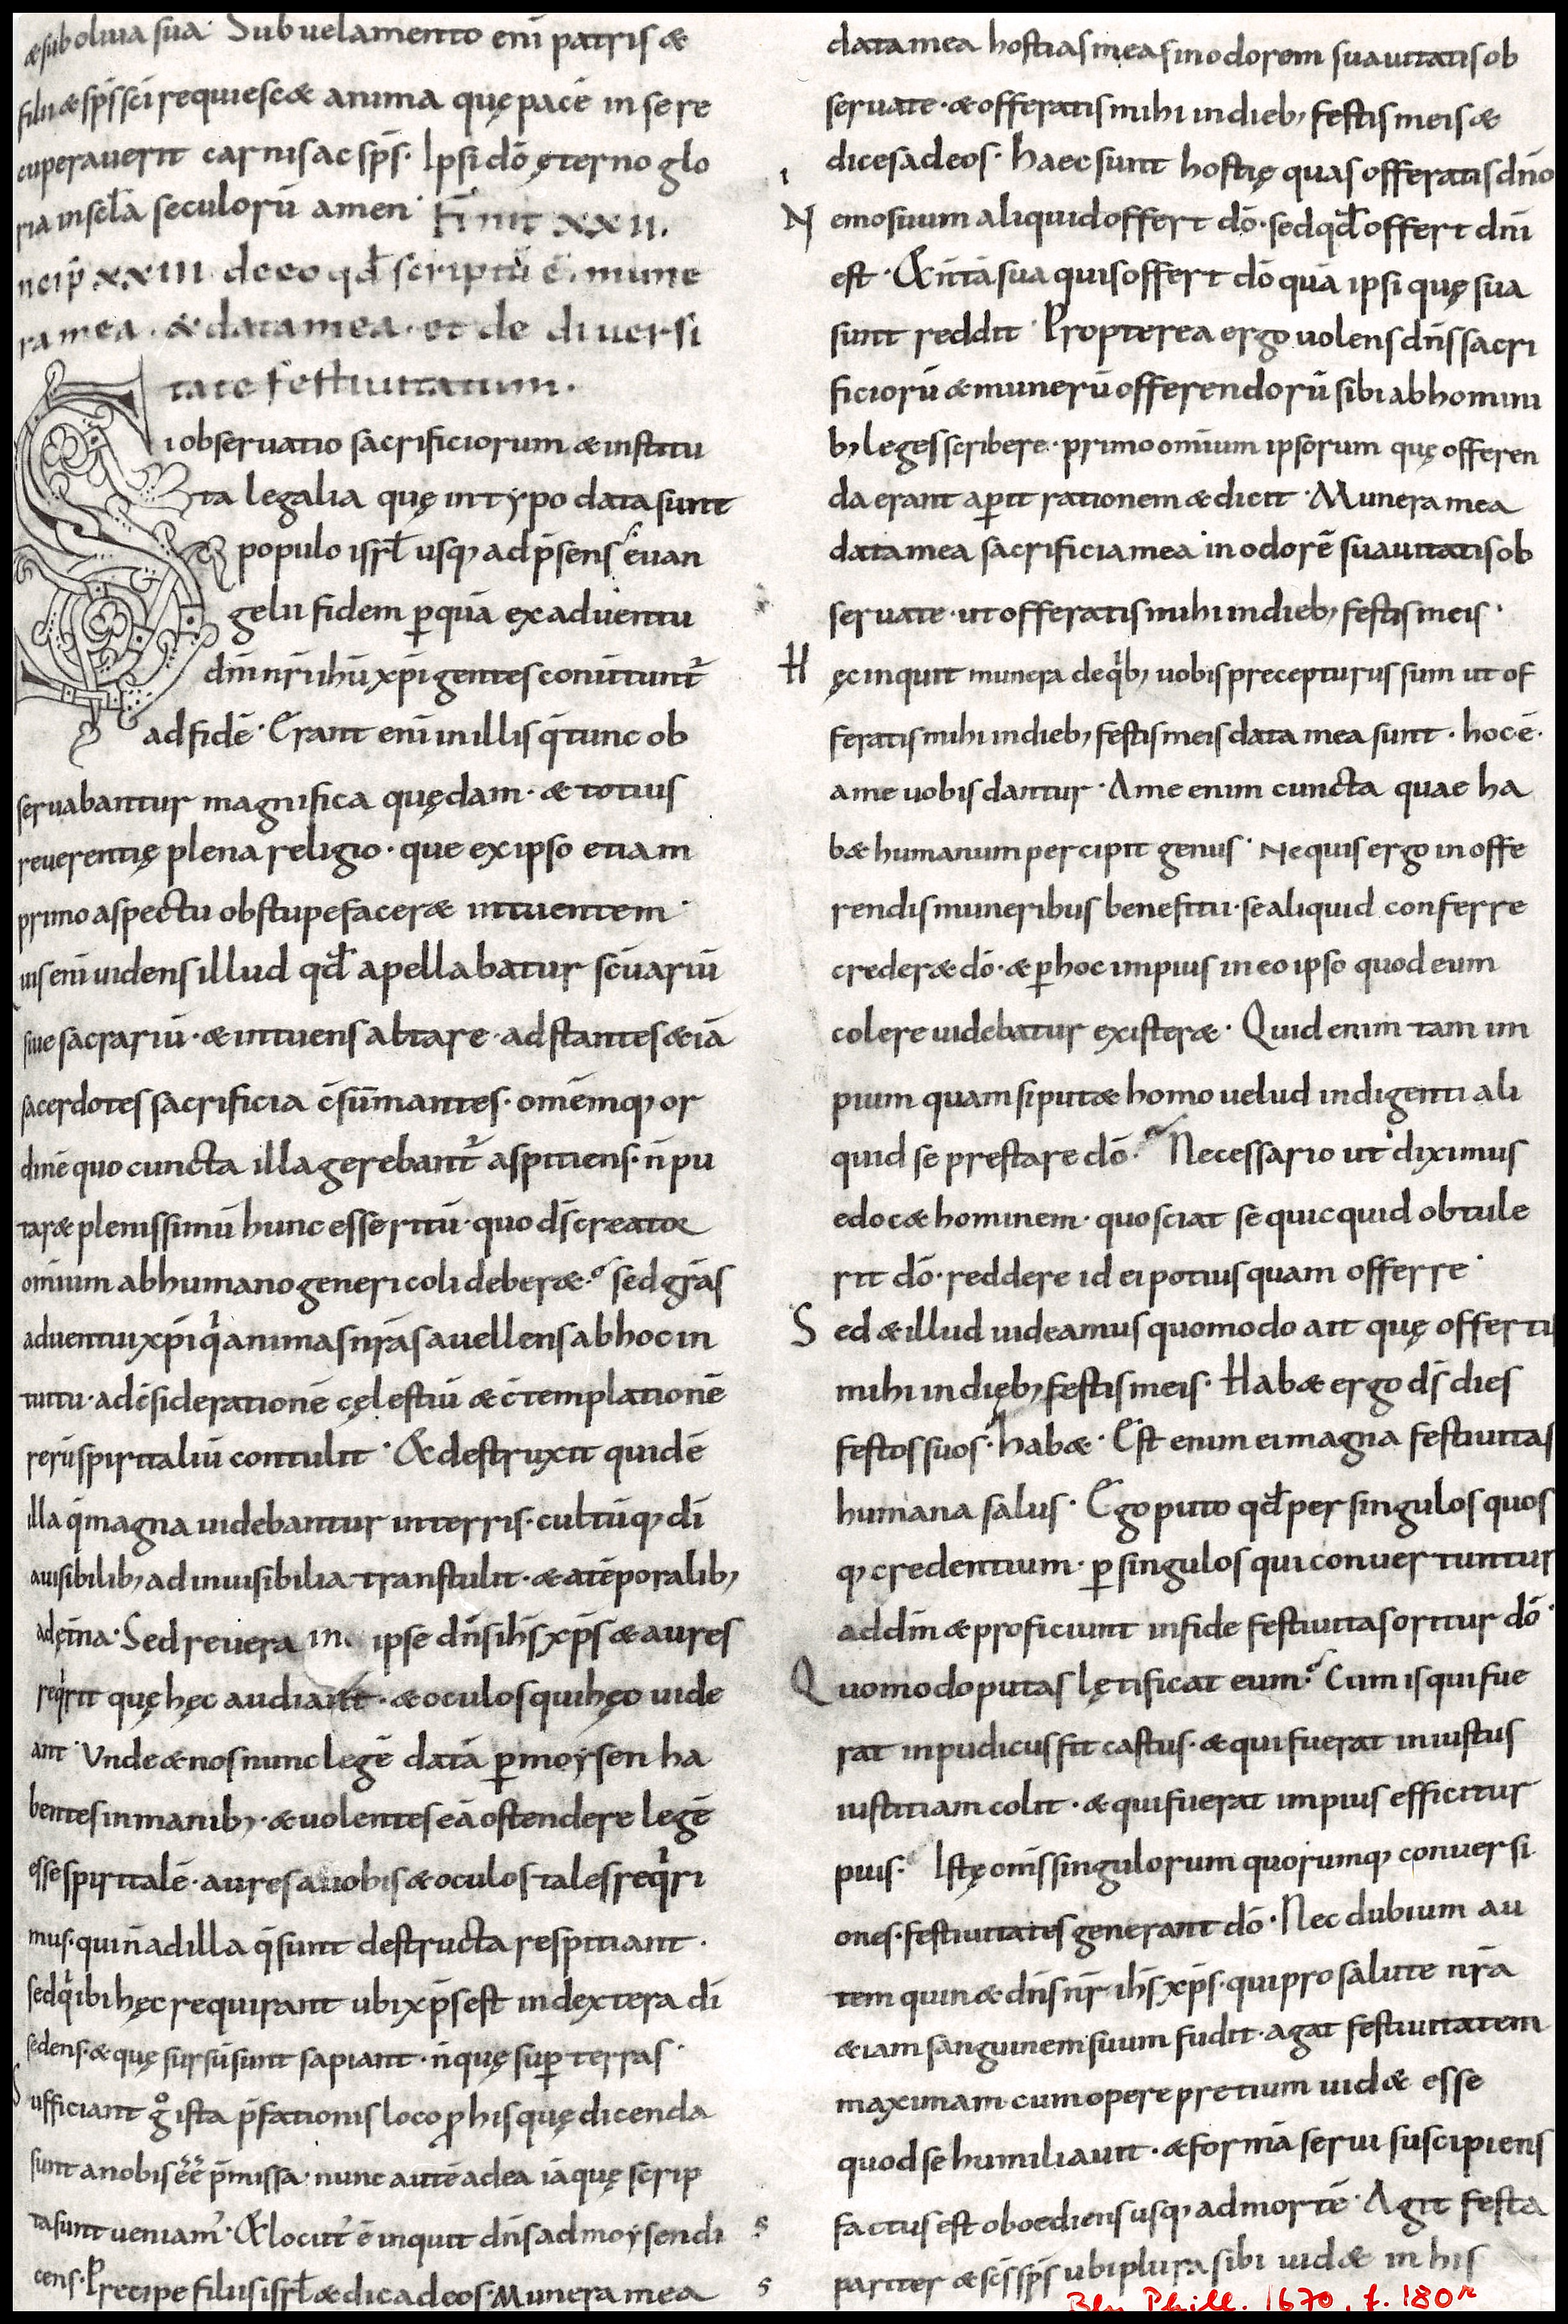 & sub oliua sua· Sub uelamento eni̅ patris &
filii & sp̅s s̅ci requiesc& anima quę pace̅ in se re
cuperauerit carnis ac sp̅s· Ipsi do̅ ęterno glo
ria in secl̅a seculoru̅ amen· Finit XXII.
ncip̅ XXIII de eo qd̅ scriptu̅ e̅· mune
ra mea· & data mea· et de diuersi
tate festiuitatum·
S i obseruatio sacrificiorum & institu
ta legalia quę in typo data sunt
populo isrl̅ usq; ad p̅sens euan
gelii fidem p̲ qua̅ ex aduentu
dn̅i nr̅i ihu̅ xp̅i gentes conuertunt̅
ad fide̅· Erant eni̅ in illis q̅ tunc ob
seruabantur magnifica quędam· & totius
reuerentię plena religio· que ex ipso etiam
primo aspectu obstupefacer& intuentem·
uis eni̅ uidens illud qd̅ apellabatur sc̅uariu̅
siue sacrariu̅· & intuens altare· adstantes & ia̅
sacerdotes sacrificia c̅su̅mantes· ome̅mq; or
dine̅ quo cuncta illa gerebant̅ aspitiens· n̅ pu
tar& plenissimu̅ hunc esse ritu̅· quo d̅s creator
omium ab humano generi coli deber&· sed gr̅as
aduentui xp̅i q̅ animas nr̅as auellens ab hoc in
tuitu· ad c̅sideratione̅ cęlestiu̅ & c̅templatione̅
reru̅ spiritaliu̅ contulit· & destruxit quide̅
illa q̅ magna uidebantur in terris· cultu̅q; di̅
a uisibilib; ad inuisibilia transtulit· & a te̅poralib;
ad ęt̅na· Sed reuera ipse dn̅s ih̅s xp̅s & aures
req̅rit quę hęc audiant· & oculos qui hęc uide
ant· Vnde & nos nunc lege̅ data̅ p̲ moysen ha
bentes in manib;· & uolentes ea̅ ostendere lege̅
esse spiritale̅· aures a uobis & oculos tales req̅ri
mus· qui n̅ ad illa q̅ sunt destructa respitiant·
sed q̅ ibi hęc requirant ubi xp̅s est in dextera di̅
sedens· & quę sursu̅ sunt sapiant· n̅ quę sup̲ terras·
ufficiant g̊ ista p̅fationis loco p̲ his quę dicenda
sunt a nobis e̅e̅ p̅missa· nunc aute̅ ad ea ia̅ quę scrip
ta sunt ueniam̅· & locut̅ e̅ inquit dn̅s ad moysen di
cens· Precipe filiis isrl̅ & dic ad eos· Munera mea
data mea hostias meas in odorem suauitatis ob
seruate· & offeratis mihi in dieb; festis meis &
dices ad eos· haec sunt hostię quas offeratis dn̅o
N emo suum aliquid offert do̅· sed qd̅ offert dn̅i
est· & ita̅ sua quis offert do̅ qua̅ ipsi quę sua
sunt reddit· Propterea ergo uolens dn̅s sacri
ficioru̅ & muneru̅ offerendoru̅ sibi ab homini
b; leges scribere· primo omium ipsorum quę offeren
da erant ap̲it rationem & dicit· Munera mea
data mea sacrificia mea in odore̅ suauitatis ob
seruate· ut offeratis mihi in dieb; festis meis·
H ęc inquit munera de q̅b; uobis precepturus sum ut of
feratis mihi in dieb; festis meis data mea sunt· hoc e̅·
a me uobis dantur· A me enim cuncta quae ha
b& humanum percipit genus· Ne quis ergo in offe
rendis muneribus benefitii· se aliquid conferre
creder& do̅· & p̲ hoc impius in eo ipso quod eum
colere uidebatur exister&· Quid enim tam im
pium quam si put& homo uelud indigenti ali
quid se prestare do̅· Necessario ut diximus
edoc& hominem· quo sciat se quicquid obtule
rit do̅· reddere id ei potius quam offerre·
S ed & illud uideamus quomodo ait quę offerti
mihi in dięb; festis meis· Hab& ergo d̅s dies
festos suos· hab&· Est enim ei magna festiuitas
humana salus· Ego puto qd̅ per singulos quos
q; credentium· p̲ singulos qui conuertuntur
ad dn̅m & proficiunt in fide festiuitas oritur do̅·
Q uomodo putas lętificat eum· Cum is qui fue
rat inpudicus fit castus· & qui fuerat iniustus
iustitiam colit· & qui fuerat impius efficitur
pius· Istę omi̅s singulorum quorumq; conuersi
ones· festiuitates generant do̅· Nec dubium au
tem quin & dn̅s nr̅ ih̅s xp̅s· qui pro salute nr̅a
& iam sanguinem suum fudit· agat festiuitatem
maximam cum opere pretium uid& esse
quod se humiliauit· & forma̅ serui suscipiens
factus est oboediens usq; ad morte̅· Agit festa
pariter & sc̅s sp̅s ubi plura sibi uid& in his
Bln Phill. 1670, f. 180r